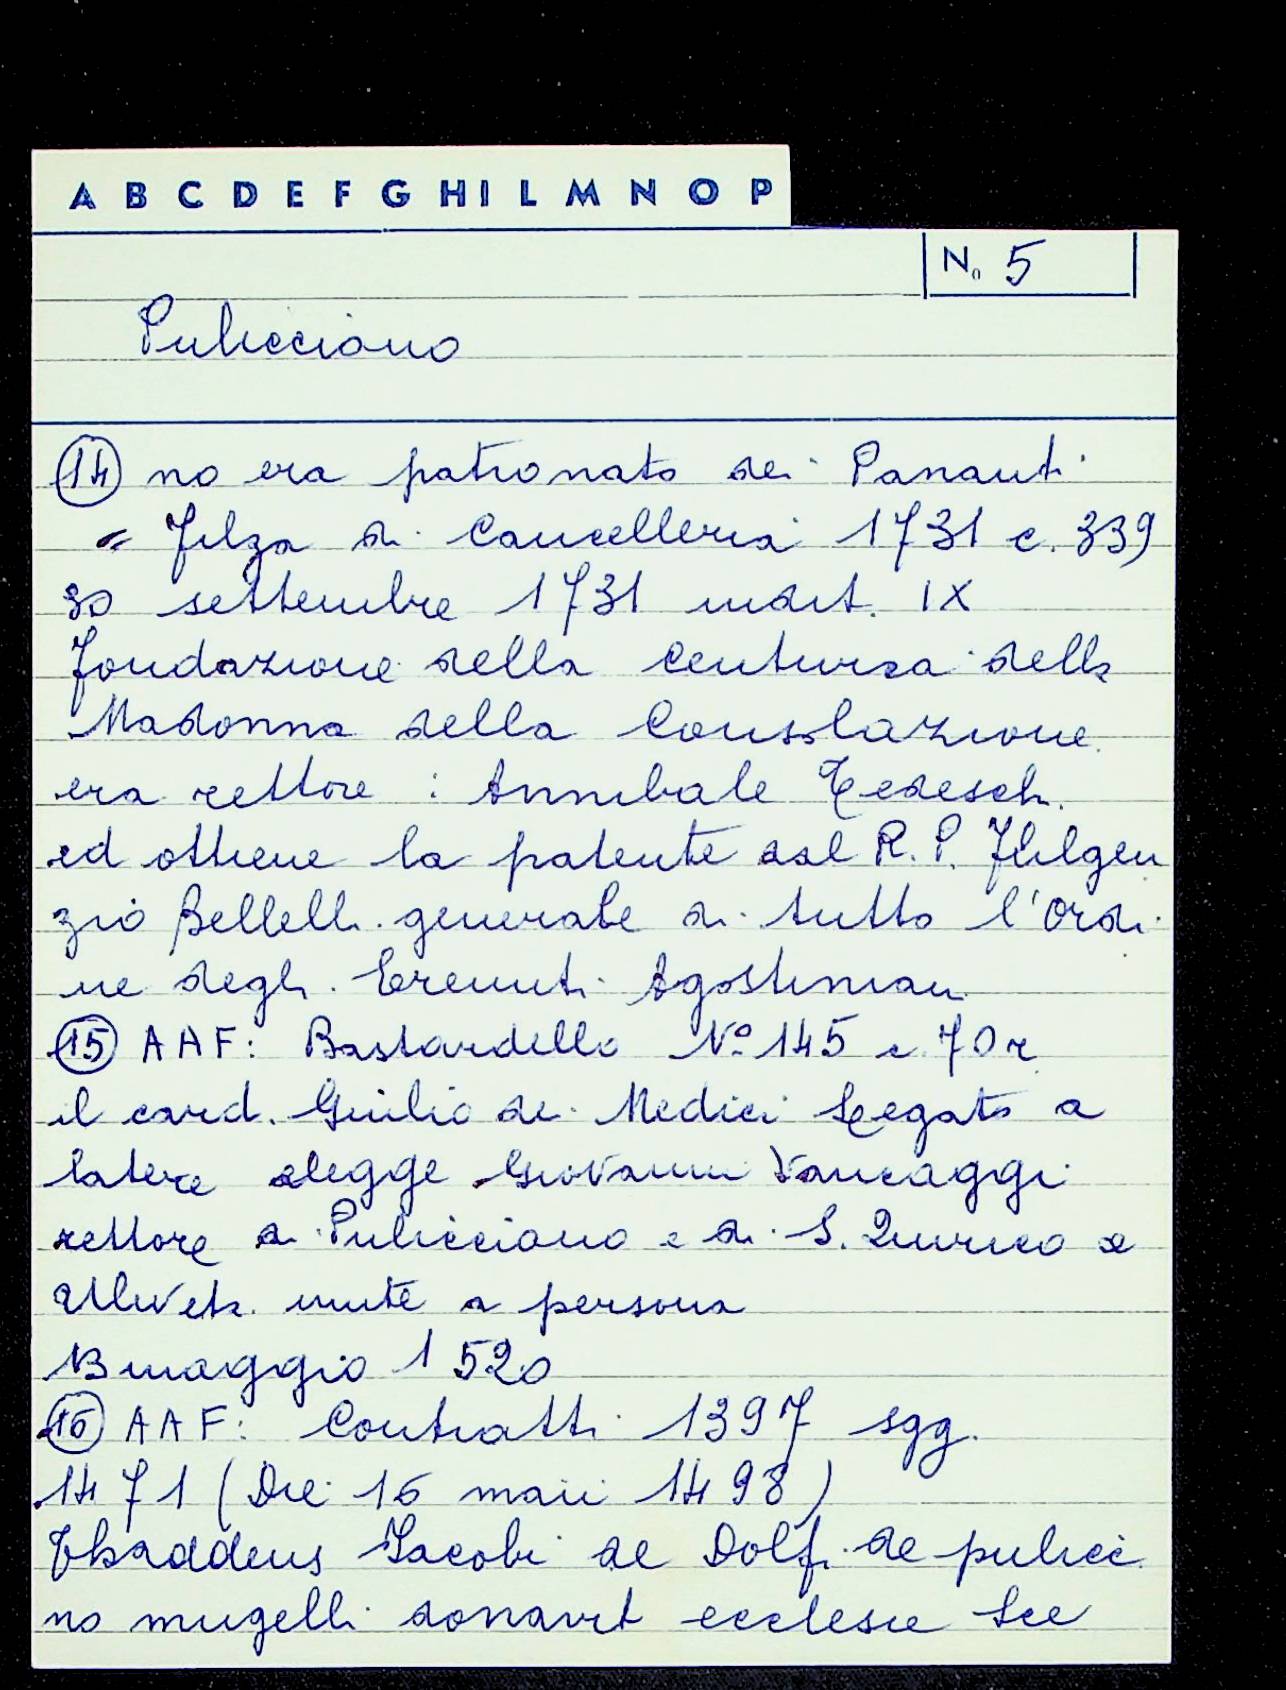 A B C D E F G H I L M N O P
No 5
Pulicciano
(14) no era patronato dei Panauti
" Filza di Cancelleria 1731 c. 339
30 settembre 1731 indit. IX
fondazione della Centuria della
Madonna della Consolazione
era rettore : Annibale Tedeschi
ed ottiene la patente dal R. P. Fulgen
zio Bellelli generale di tutto l'Ordi
ne degli Eremiti Agostiniani
(15) AAF: Bastardello No 145 c. 70r
il card. Giulio de Medici Legato a
latere elegge Giovanni
rettore a Pulicciano e di S. Quirico a
unite a persona
13 maggio 1520
(16) AAF: Contratti 1397 sgg.
1471 (Die 16 maii 1498)
Thaddeus Jacobi de Dolfi de pulicci
no mugelli donavit ecclesie Sce